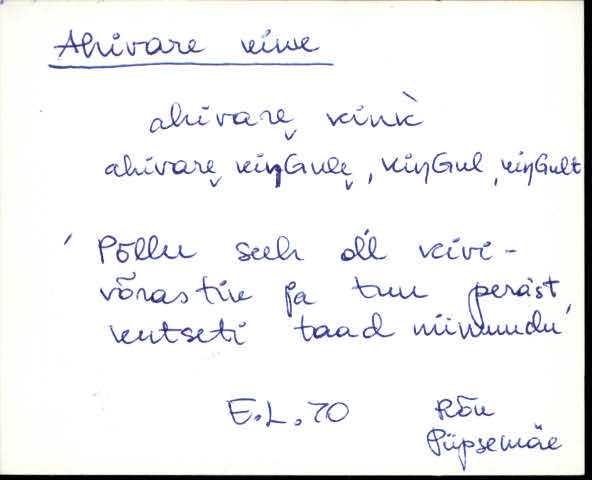 Ahivare kink
ahivarę kink̀
ahivarę kiŋGulę, kiŋGul, kiŋGult
' Põllu seeh oĺl kivi-
võrastik ja tuu peräst
kutseti taad niimuudu'
E.L. 70 Rõu
Püpsemäe